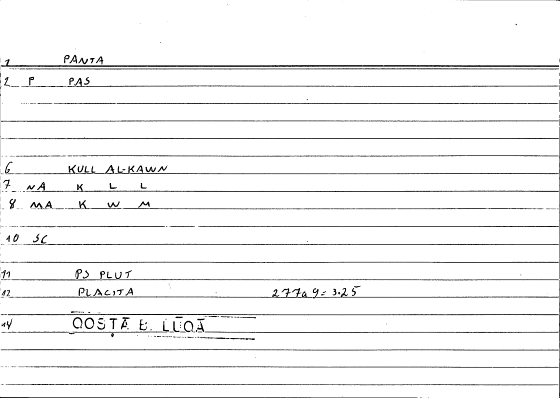 1 PANTA
2 P PAS
6 KULL AL-KAWN
7 NA K L L
8 MA K W M
10 SC
11 PS PLUT
12 PLACITA 277a9=3.25
14 QOSṬĀ B. LŪQĀ